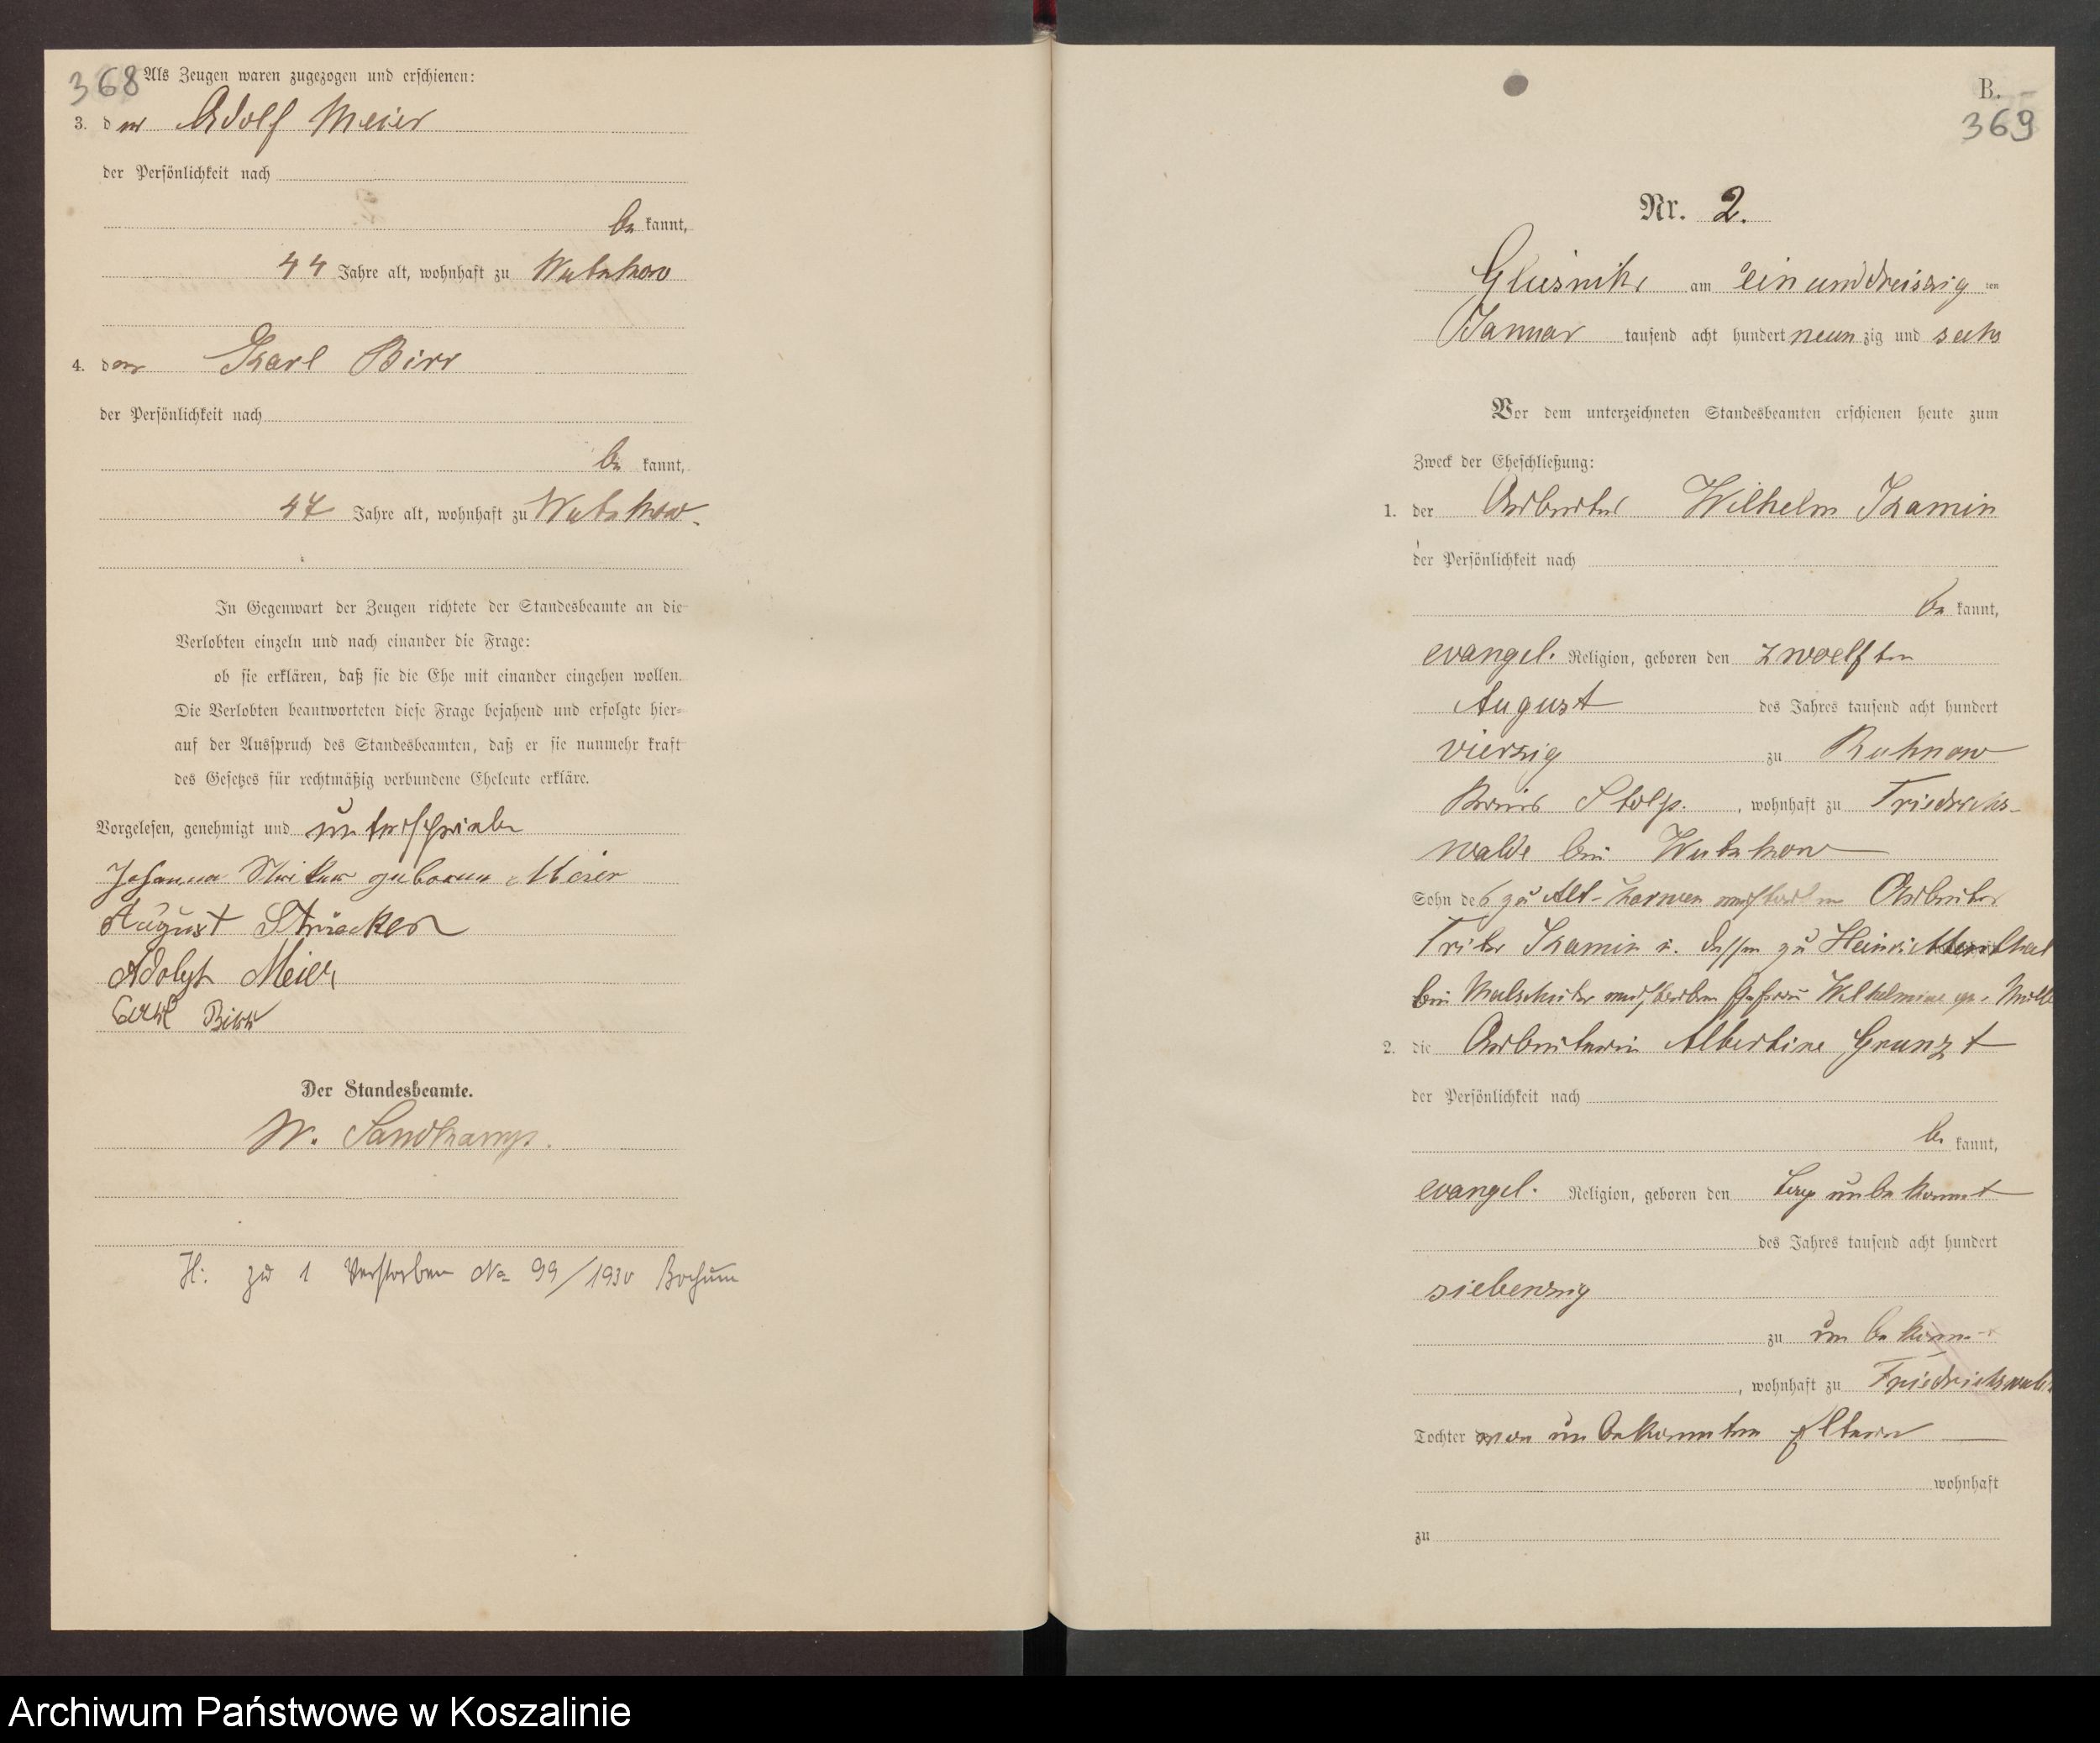 368 Als Zeugen waren zugezogen und erschienen:
3. der Adolf Meier
der Persönlichkeit nach
be kannt,
44 Jahre alt, wohnhaft zu Wutzkow
4. der Karl Birr
der Persönlichkeit nach
be kannt,
47 Jahre alt, wohnhaft zu Wutzkow.
In Gegenwart der Zeugen richtete der Standesbeamte an die
Verlobten einzeln und nach einander die Frage:
ob sie erklären, daß sie die Ehe mit einander eingehen wollen.
Die Verlobten beantworteten diese Frage bejahend und erfolgte hier=
auf der Ausspruch des Standesbeamten, daß er sie nunmehr kraft
des Gesetzes für rechtmäßig verbundene Eheleute erkläre.
Vorgelesen, genehmigt und unterschrieben
Johanna geborene Meier
August Strücker
Adolph Meier
Carl Birr
Der Standesbeamte.
W. Sandkamp.
H: zu 1 Verstorben No 99/1930 Bochum
B.
369
Nr. 2.
Glusnitz am einunddreissig ten
Januar tausend acht hundert neun zig und sechs
Vor dem unterzeichneten Standesbeamten erschienen heute zum
Zweck der Eheschließung:
1. der Arbeiter Wilhelm Kamin
der Persönlichkeit nach
be kannt,
evangel. Religion, geboren den zwoelften
August des Jahres tausend acht hundert
vierzig zu Ruhnow
Kreis Stolp. , wohnhaft zu Friedrichs-
walde bei Wutzkow
Sohn des zu Alt- verstorbenen Arbeiter
Kamin u. dessen zu
bei verstorbenen Ehefrau Wilhelmine
2. die Arbeiterin Albertine Grunzt
der Persönlichkeit nach
be kannt,
evangel. Religion, geboren den Tag unbekannt
des Jahres tausend acht hundert
siebenzig
zu unbekannt
, wohnhaft zu Friedrichswalde
Tochter von unbekannten Eltern
wohnhaft
zu
Archiwum Państwowe w Koszalinie